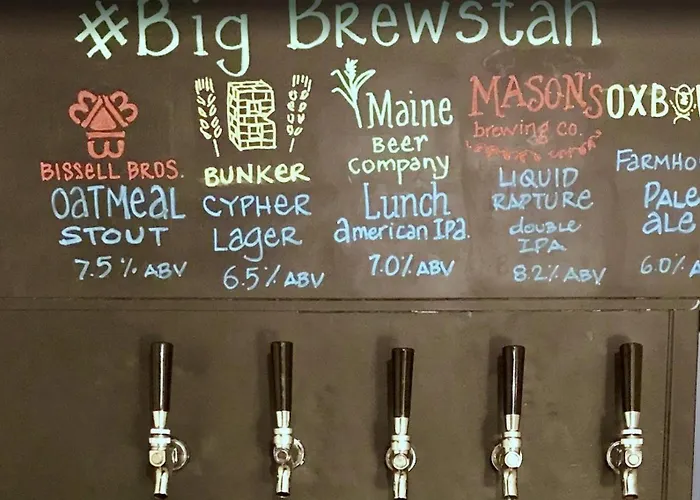 #Big Brewstah
BISSELL BROS.
OaTmeal
STOUT
7.5% ABV
BUNKER
CYPHER
Lager
6.5% ABV
Maine
Beer
company
Lunch
american IPa.
7.0% ABV
MASON'S
brewing co.
LIQUID
RAPTURE
double
IPA
8.2% ABV
OXBO
FARMHO
PALE
ale
6.0% A